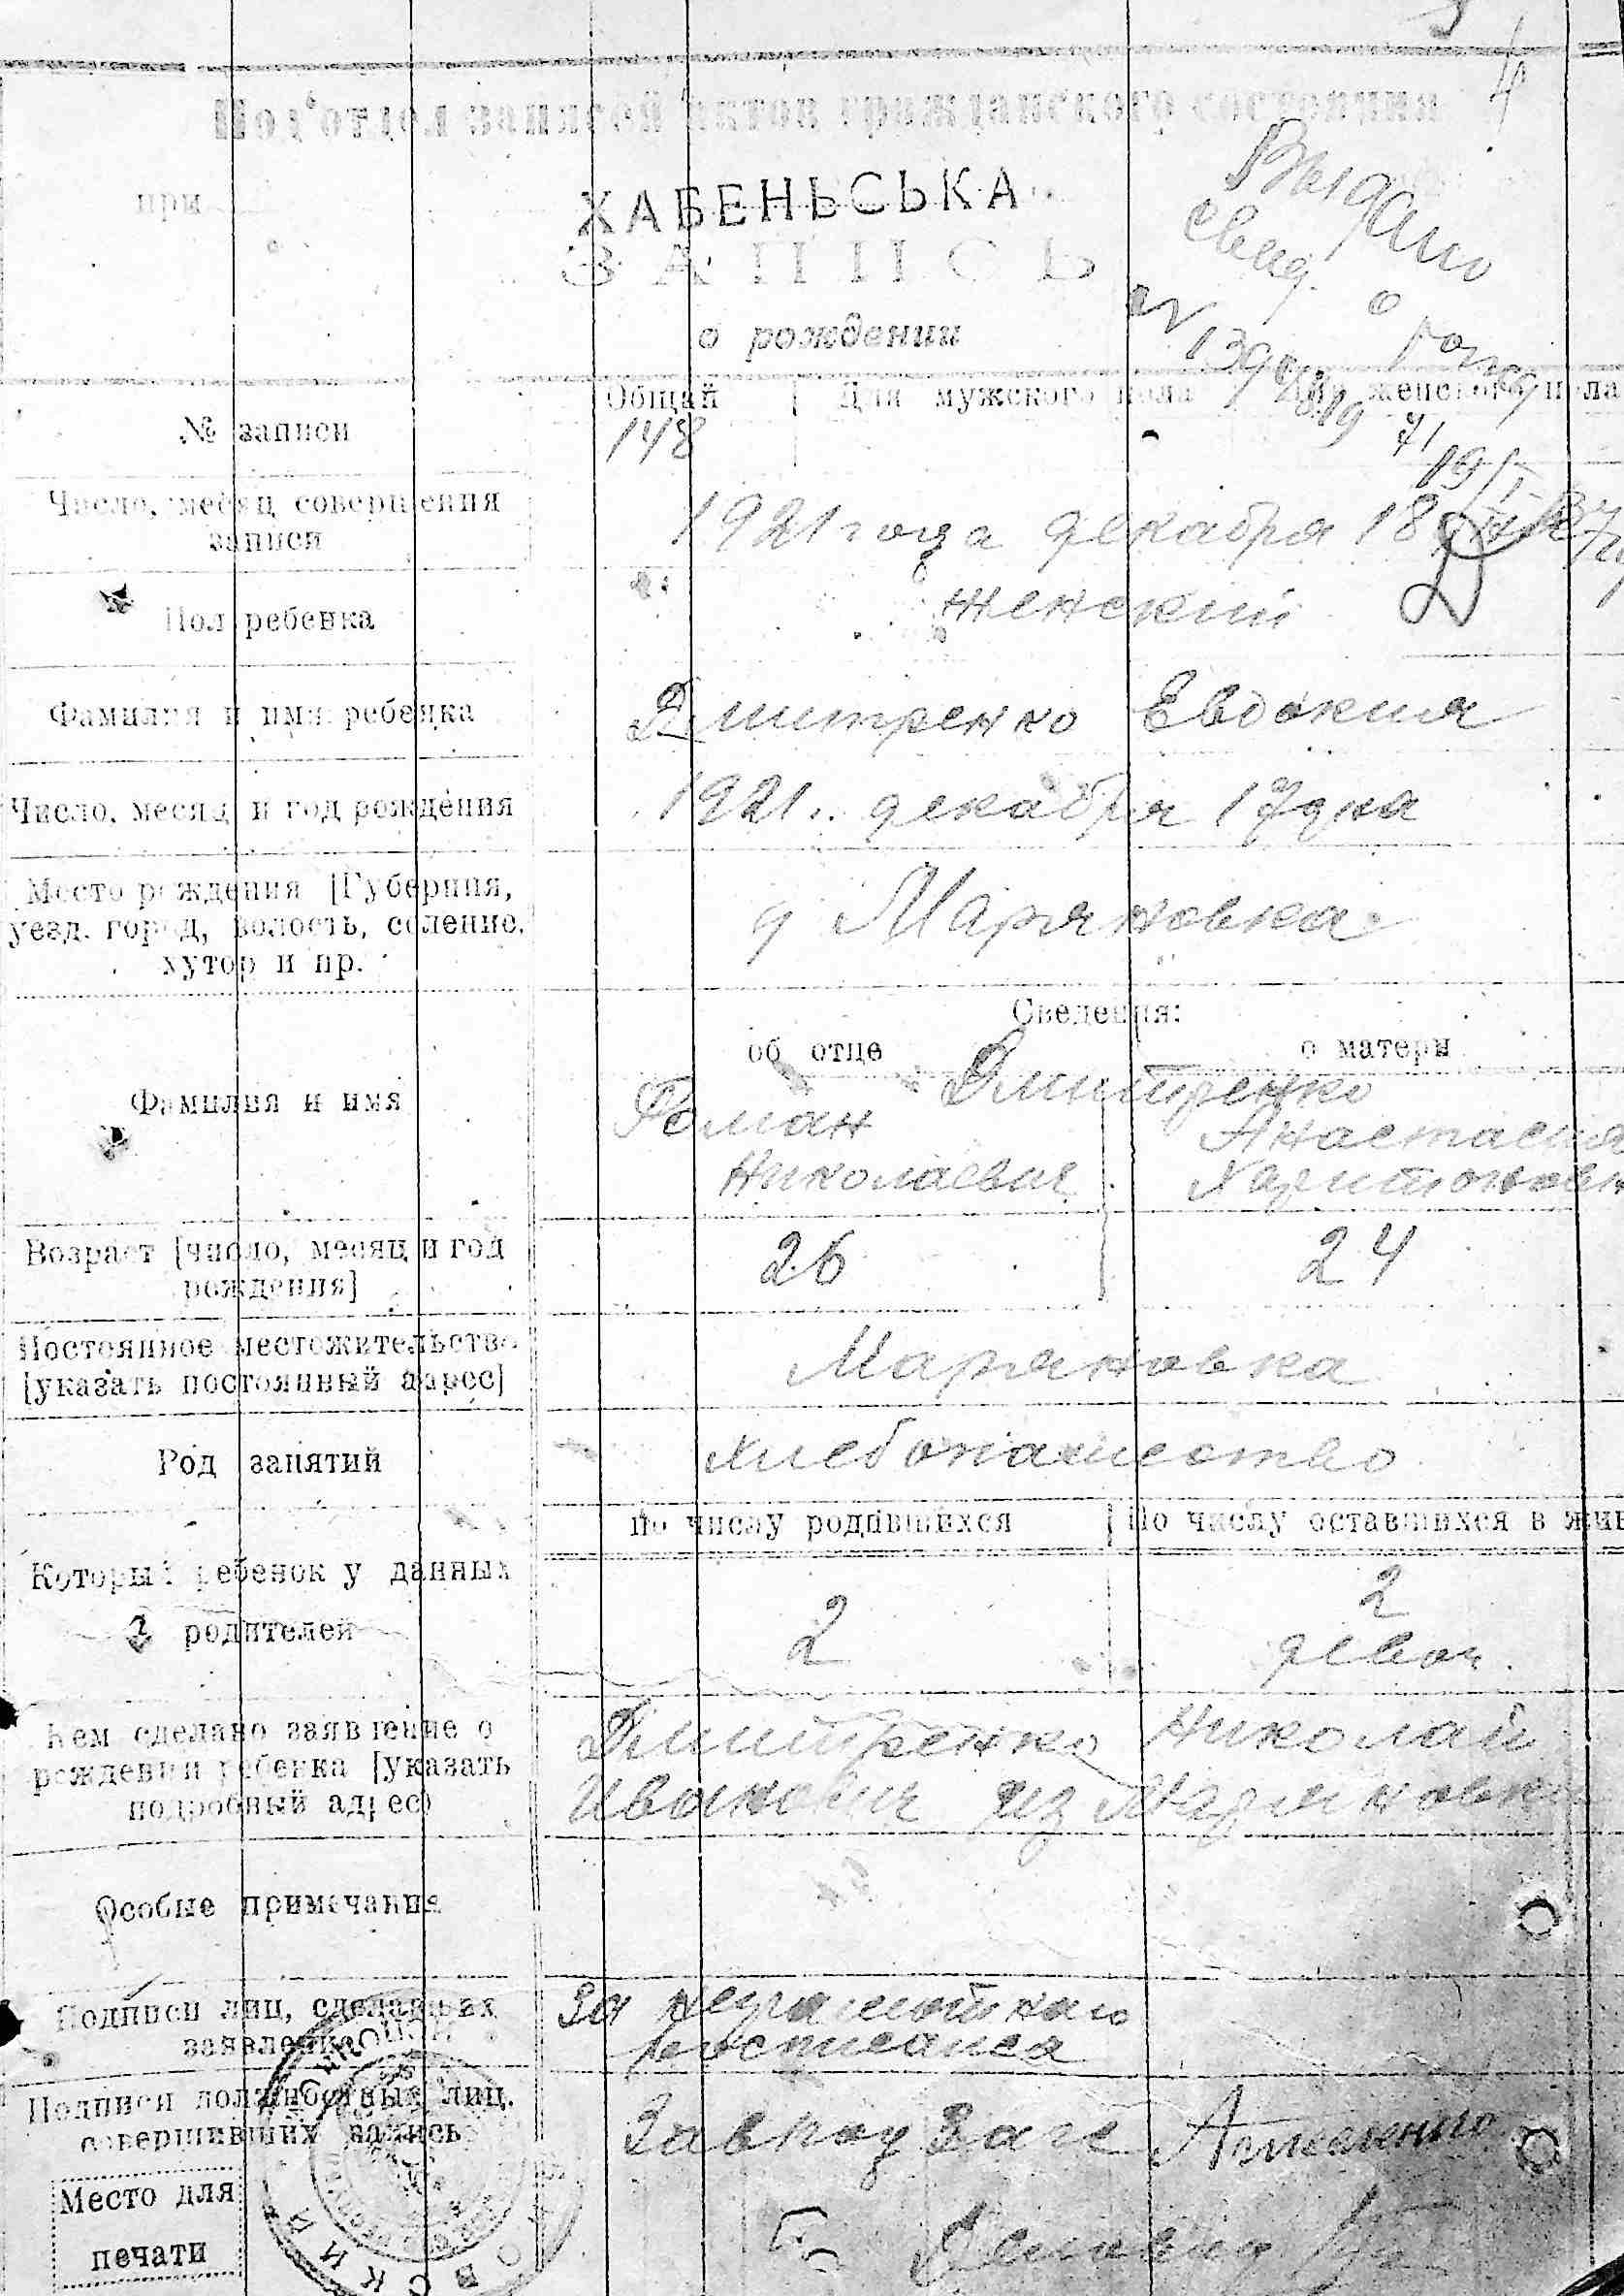 Подотдел записей актов гражданского состояния
при
ХАБЕНЬСЬКА
ЗАПИСЬ
о рождении
Выдано
свид. о
№ записи
Общий
Для мужского пола
Для женского пола
148
Число, месяц совершения
записи
1921 года декабря 18 дня
Пол ребенка
женский
Фамилия и имя ребенка
Дмитренко Евдокия
Число, месяц и год рождения
1921 г. декабря 17 дня
Место рождения [Губерния,
уезд. город, волость, селение,
хутор и пр.
д Маряновка
Сведения:
об отце
о матери
Фамилия и имя
Дмитренко
Роман
Николаевич
Анастасия
Харитоновн
Возраст [число, месяц и год
рождения]
26
24
Постоянное местожительство
[указать постоянный адрес]
Маряновка
Род занятий
хлебопашество
По числу родившихся
По числу оставшихся в жив
Который ребенок у данных
родителей
2
2
девоч.
Кем сделано заявление о
рождении ребенка [указать
подробный адрес)
Дмитренко Николай
Иванович из Маряновки
Особые примечания
Подписи лиц, сделавших
заявление
За неграмотного
росписался
Подписи должностных лиц,
совершивших запись
Завпод Загс
Место для
печати